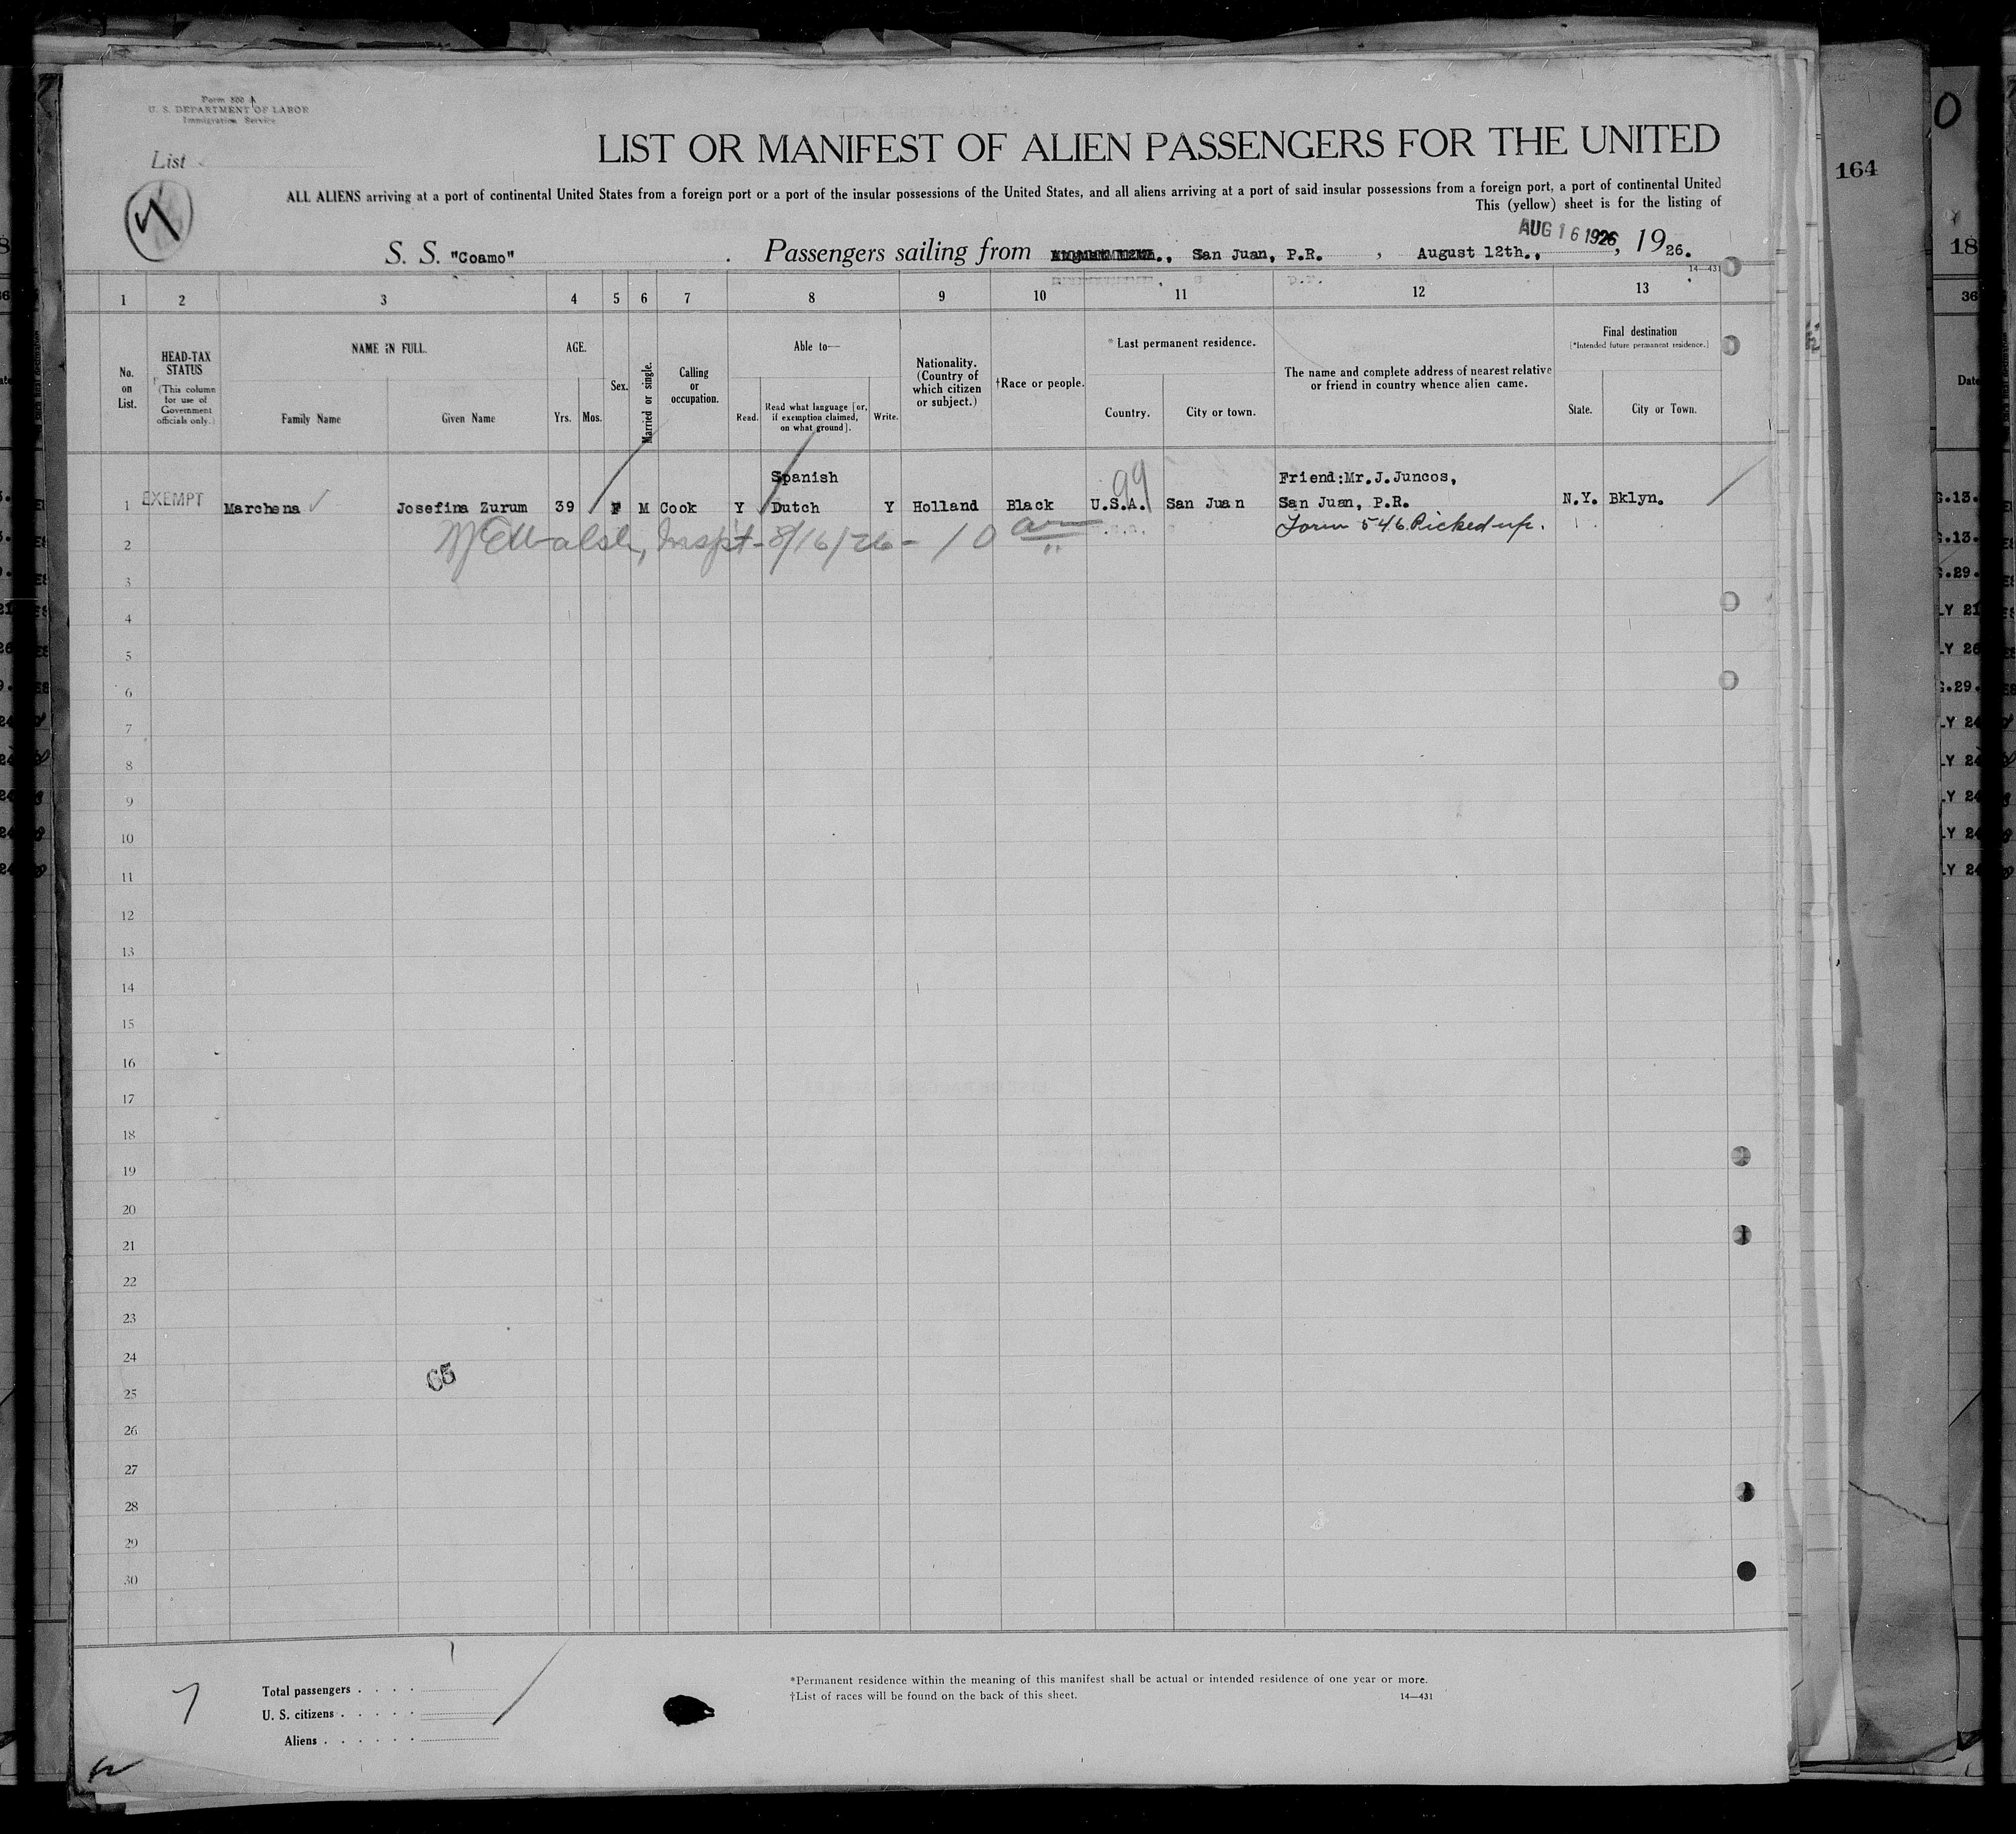 Form 500 A
U. S. DEPARTMENT OF LABOR
Immigration Service
List
LIST OR MANIFEST OF ALIEN PASSENGERS FOR THE UNITED
164
ALL ALIENS arriving at a port of continental United States from a foreign port or a port of the insular possessions of the United States, and all aliens arriving at a port of said insular possessions from a foreign port, a port of continental United
This (yellow) sheet is for the listing of
AUG 16 1926
S. S. "Coamo" . Passengers sailing from San Juan, P.R. , August 12th., , 1926.
14—431
1 2 3 4 5 6 7 8 9 10 11 12 13
No. on List.
HEAD-TAX STATUS
(This column for use of Government officials only.)
NAME IN FULL.
Family Name Given Name
AGE.
Yrs. Mos.
Sex.
Married or single.
Calling or occupation.
Able to—
Read. Read what language [or, if exemption claimed, on what ground]. Write.
Nationality. (Country of which citizen or subject.)
†Race or people.
*Last permanent residence.
Country. City or town.
The name and complete address of nearest relative or friend in country whence alien came.
Final destination
(*Intended future permanent residence.)
State. City or Town.
Spanish 99 Friend:Mr.J.Juncos,
1 EXEMPT Marchena Josefina Zurum 39 F M Cook Y Dutch Y Holland Black U.S.A. San Juan San Juan, P.R. N.Y. Bklyn.
Form 546 Picked up.
2 Inspt-8/16/26- 10 am
3
4
5
6
7
8
9
10
11
12
13
14
15
16
17
18
19
20
21
22
23
24
65
25
26
27
28
29
30
Total passengers . . . .
U. S. citizens . . . . .
Aliens . . . . . .
*Permanent residence within the meaning of this manifest shall be actual or intended residence of one year or more.
†List of races will be found on the back of this sheet. 14—431